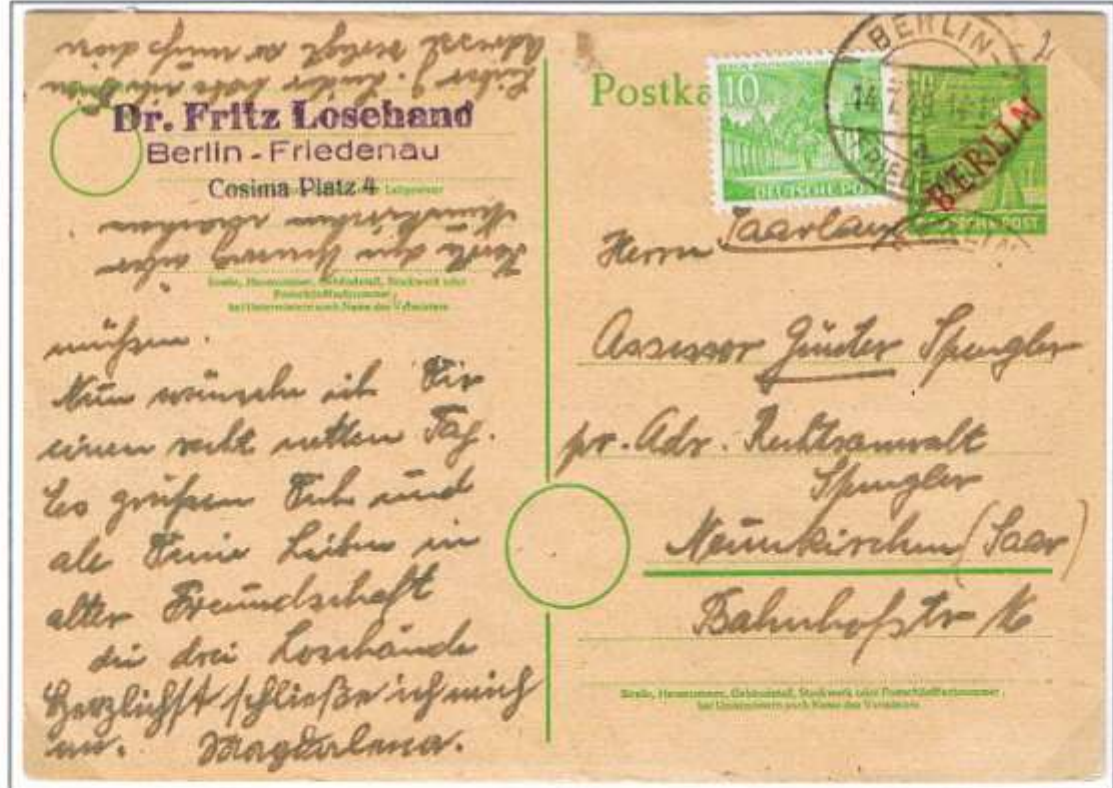 Lieber G. Leider
Adresse verlegt so muß diese
Dr. Fritz Losehand
Berlin - Friedenau
Cosima Platz 4
Karte den Umweg über
Neunkirchen machen
Straße, Hausnummer, Gebäudeteil, Stockwerk oder
Postschließfachnummer,
bei Untermietern auch Name des Vermieters
müssen.
Nun wünsche ich Dir
einen recht netten Tag.
Es grüßen Dich und
alle Deine Lieben in
alter Freundschaft
die drei Losehände
Herzlichst schließe ich mich
an. Magdalena.
Postka
10
DEUTSCHE POST
BERLIN-
FRIEDENAU
14
BERLIN
DEUTSCHE POST
Saarland
Herrn
Assessor Günter Spengler
pr. Adr. Rechtsanwalt
Spengler
Neunkirchen (Saar)
Bahnhofstr
Straße, Hausnummer, Gebäudeteil, Stockwerk oder Postschließfachnummer,
bei Untermietern auch Name des Vermieters